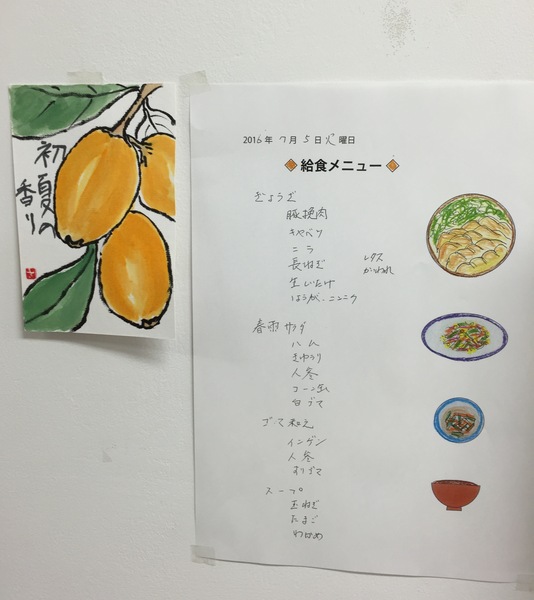 初夏の
香り
2016年 7月 5日 火曜日
給食メニュー
ぎょうざ
豚挽肉
キャベツ
ニラ
長ねぎ
レタス
かいわれ
生しいたけ
しょうが、ニンニク
春雨サラダ
ハム
きゅうり
人参
コーン缶
白ゴマ
ゴマ和え
インゲン
人参
すりゴマ
スープ
玉ねぎ
たまご
わかめ